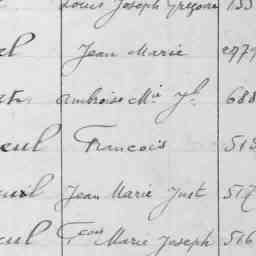 Louis Joseph Grégoire 133
Jean Marie 2971
Ambroise Mie Jh 688
eul François 513
euil Jean Marie Just 517
eul Fcois Marie Joseph 516